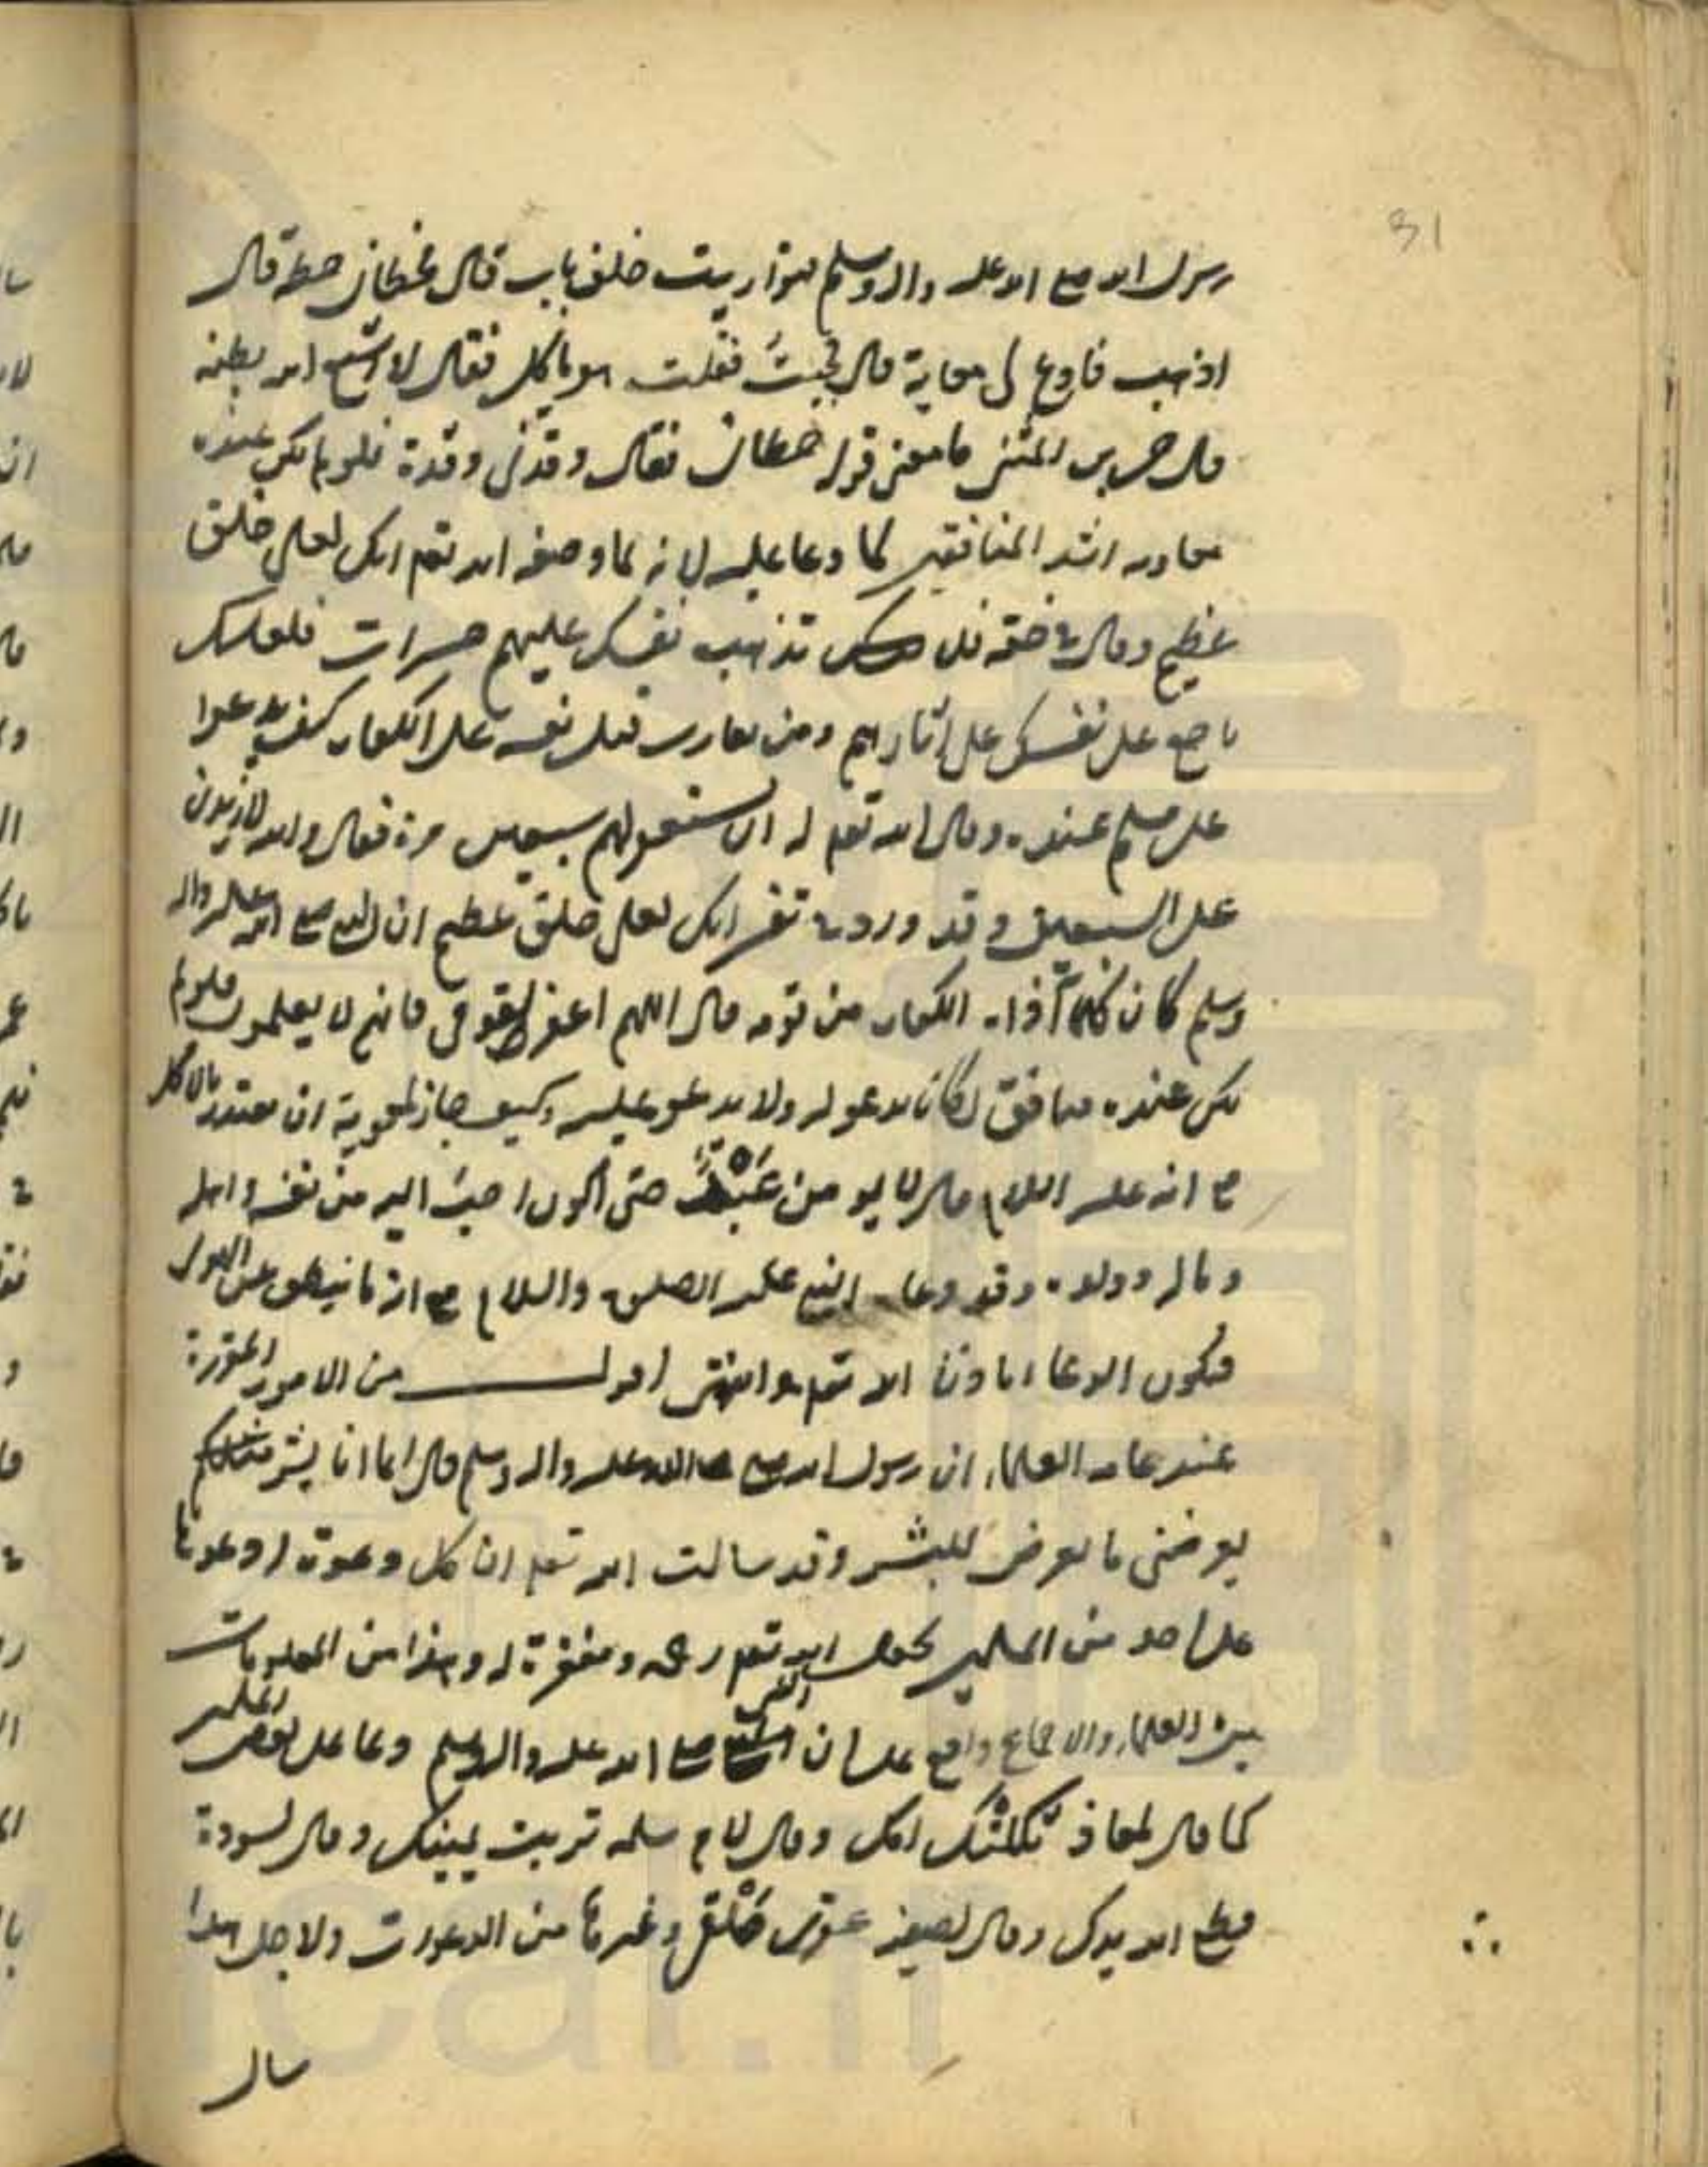 31
رسول الله صلى الله عليه واله وسلم فتواريت خلف باب قال فحطاني حطاة قال
اذهب فادع لى معاوية قال فجئت فقلت هو ياكل فقال لا اشبع الله بطنه
قال بن المثنى ما معنى قوله حطانى فقال وقدنى وقدة فلو لم يكن عنده
معاويه اشد المنافقين لما دعا عليه لانه لما وصفه الله تعم انك لعلى خلق
عظيم وقال فى حقه فلا تذهب نفسك عليهم حسرات فلعلك
باخع نفسك على اثارهم ومن يقارب قتل نفسه على الكفار كيف يدعوا
على مسلم عنده وقال الله تعم له ان تستغفر لهم سبعين مرة فقال والله لازيدن
على السبعين وقد ورد فى تفسير انك لعلى خلق عظيم ان النبى صلى الله عليه واله
وسلم كان كلما آذاه الكفار من قومه قال اللهم اغفر لقومى فانهم لا يعلمون فلو لم
يكن عنده منافق لكان يدعو له ولا يدعو عليه وكيف جاز لمعوية ان يعتذر بالاكل
مع انه عليه السلام قال لا يومن عبد حتى اكون احب اليه من نفسه واهله
وماله وولده وقد دعاه النبى عليه الصلوة والسلام مع انه ما ينطق عن الهوى
فيكون الدعا باذن الله تعم وانتهى اقول من الامور المقررة
عند عامه العلماء ان رسول الله صلى الله عليه واله وسلم قال انما انا بشر مثلكم
يعرضنى ما يعرض للبشر وقد سالت الله تعم ان كل دعوة ادعو بها
على احد من المسلمين يجعل الله تعم رحمه ومغفرة له وهذا من المعلومات
بين العلماء والاجماع واقع على ان النبى صلى الله عليه واله وسلم دعا على بعض المسلمين
كما قال لمعاذ ثكلتك امك وقال لام سلمه تربت يمينك وقال لسودة
قطع الله يدك وقال لصفيه عقرى حلقى وغيرها من الدعوات ولاجل هذا
سال